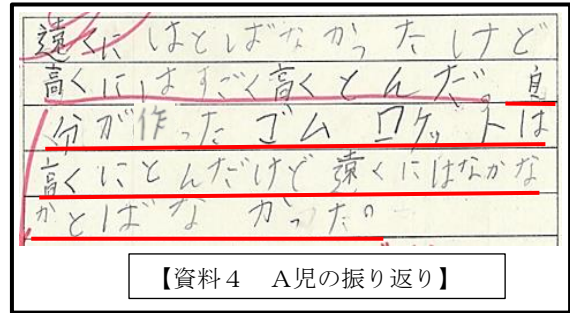 遠くにはとばなかったけど
高くにはすごく高くとんだ。自
分が作ったゴムロケットは
高くにとんだけど遠くにはなかな
かとばなかった。
【資料4 A児の振り返り】